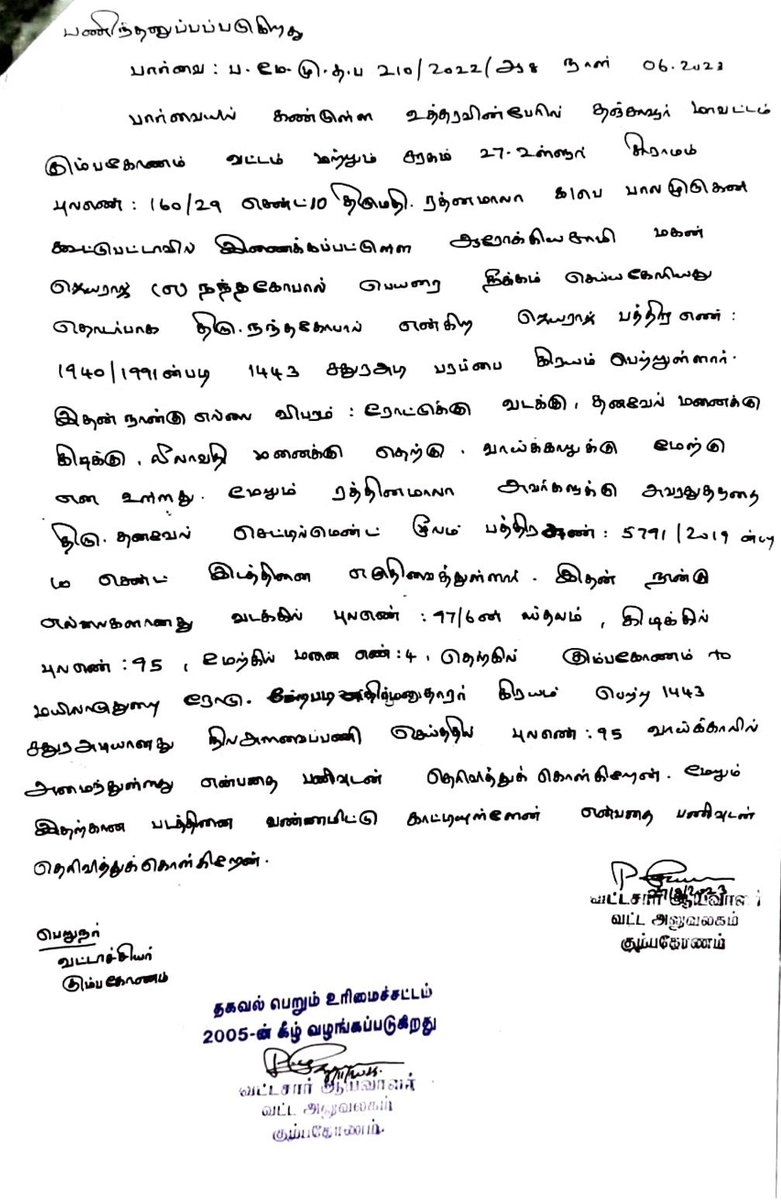 பணிந்தனுப்பப்படுகிறது
பார்வை : ப.மே.மு.த.ப 210/2022/ஆ8 நாள் 06.2023
பார்வையில் கண்டுள்ள உத்தரவின்பேரில் தஞ்சாவூர் மாவட்டம்
கும்பகோணம் வட்டம் மற்றும் சரகம் 27-உள்ளூர் கிராமம்
புலஎண் : 160/29 செண்ட் 10 திருமதி. ரத்னமாலா க/பெ பாலமுருகன்
கூட்டுபட்டாவில் இணைக்கப்பட்டுள்ள ஆரோக்கியசாமி மகன்
ஜெயராஜ் (எ) நந்தகோபால் பெயரை நீக்கம் செய்யகோரியது
தொடர்பாக திரு. நந்தகோபால் என்கிற ஜெயராஜ் பத்திர எண் :
1940/1991ன்படி 1443 சதுரஅடி பரப்பை கிரயம் பெற்றுள்ளார்.
இதன் நான்கு எல்லை விபரம் : ரோட்டுக்கு வடக்கு, தனவேல் மனைக்கு
கிழக்கு, லீலாவதி மனைக்கு தெற்கு, வாய்க்காலுக்கு மேற்கு
என உள்ளது. மேலும் ரத்தினமாலா அவர்களுக்கு அவரதுதந்தை
திரு. தனவேல் செட்டில்மெண்ட் மூலம் பத்திர எண் : 5791/2019 ன்படி
10 செண்ட் இடத்தினை எழுதிவைத்துள்ளார். இதன் நான்கு
எல்லைகளானது வடக்கில் புலஎண் : 97/6ன் ஸ்தலம், கிழக்கில்
புலஎண் : 95, மேற்கில் மனை எண் : 4, தெற்கில் கும்பகோணம் to
மயிலாடுதுறை ரோடு. மேற்படி எதிர்மனுதாரர் கிரயம் பெற்ற 1443
சதுரஅடியானது நிலஅளவைப்பணி செய்ததில் புலஎண் : 95 வாய்க்காலில்
அமைந்துள்ளது என்பதை பணிவுடன் தெரிவித்துக் கொள்கிறேன். மேலும்
இதற்கான படத்தினை வண்ணமிட்டு காட்டியுள்ளேன் என்பதை பணிவுடன்
தெரிவித்துக்கொள்கிறேன்.
வட்டசார் ஆய்வாளர்
வட்ட அலுவலகம்
கும்பகோணம்
பெறுநர்
வட்டாச்சியர்
கும்பகோணம்
தகவல் பெறும் உரிமைச்சட்டம்
2005-ன் கீழ் வழங்கப்படுகிறது
வட்டசார் ஆய்வாளர்
வட்ட அலுவலகம்
கும்பகோணம்.